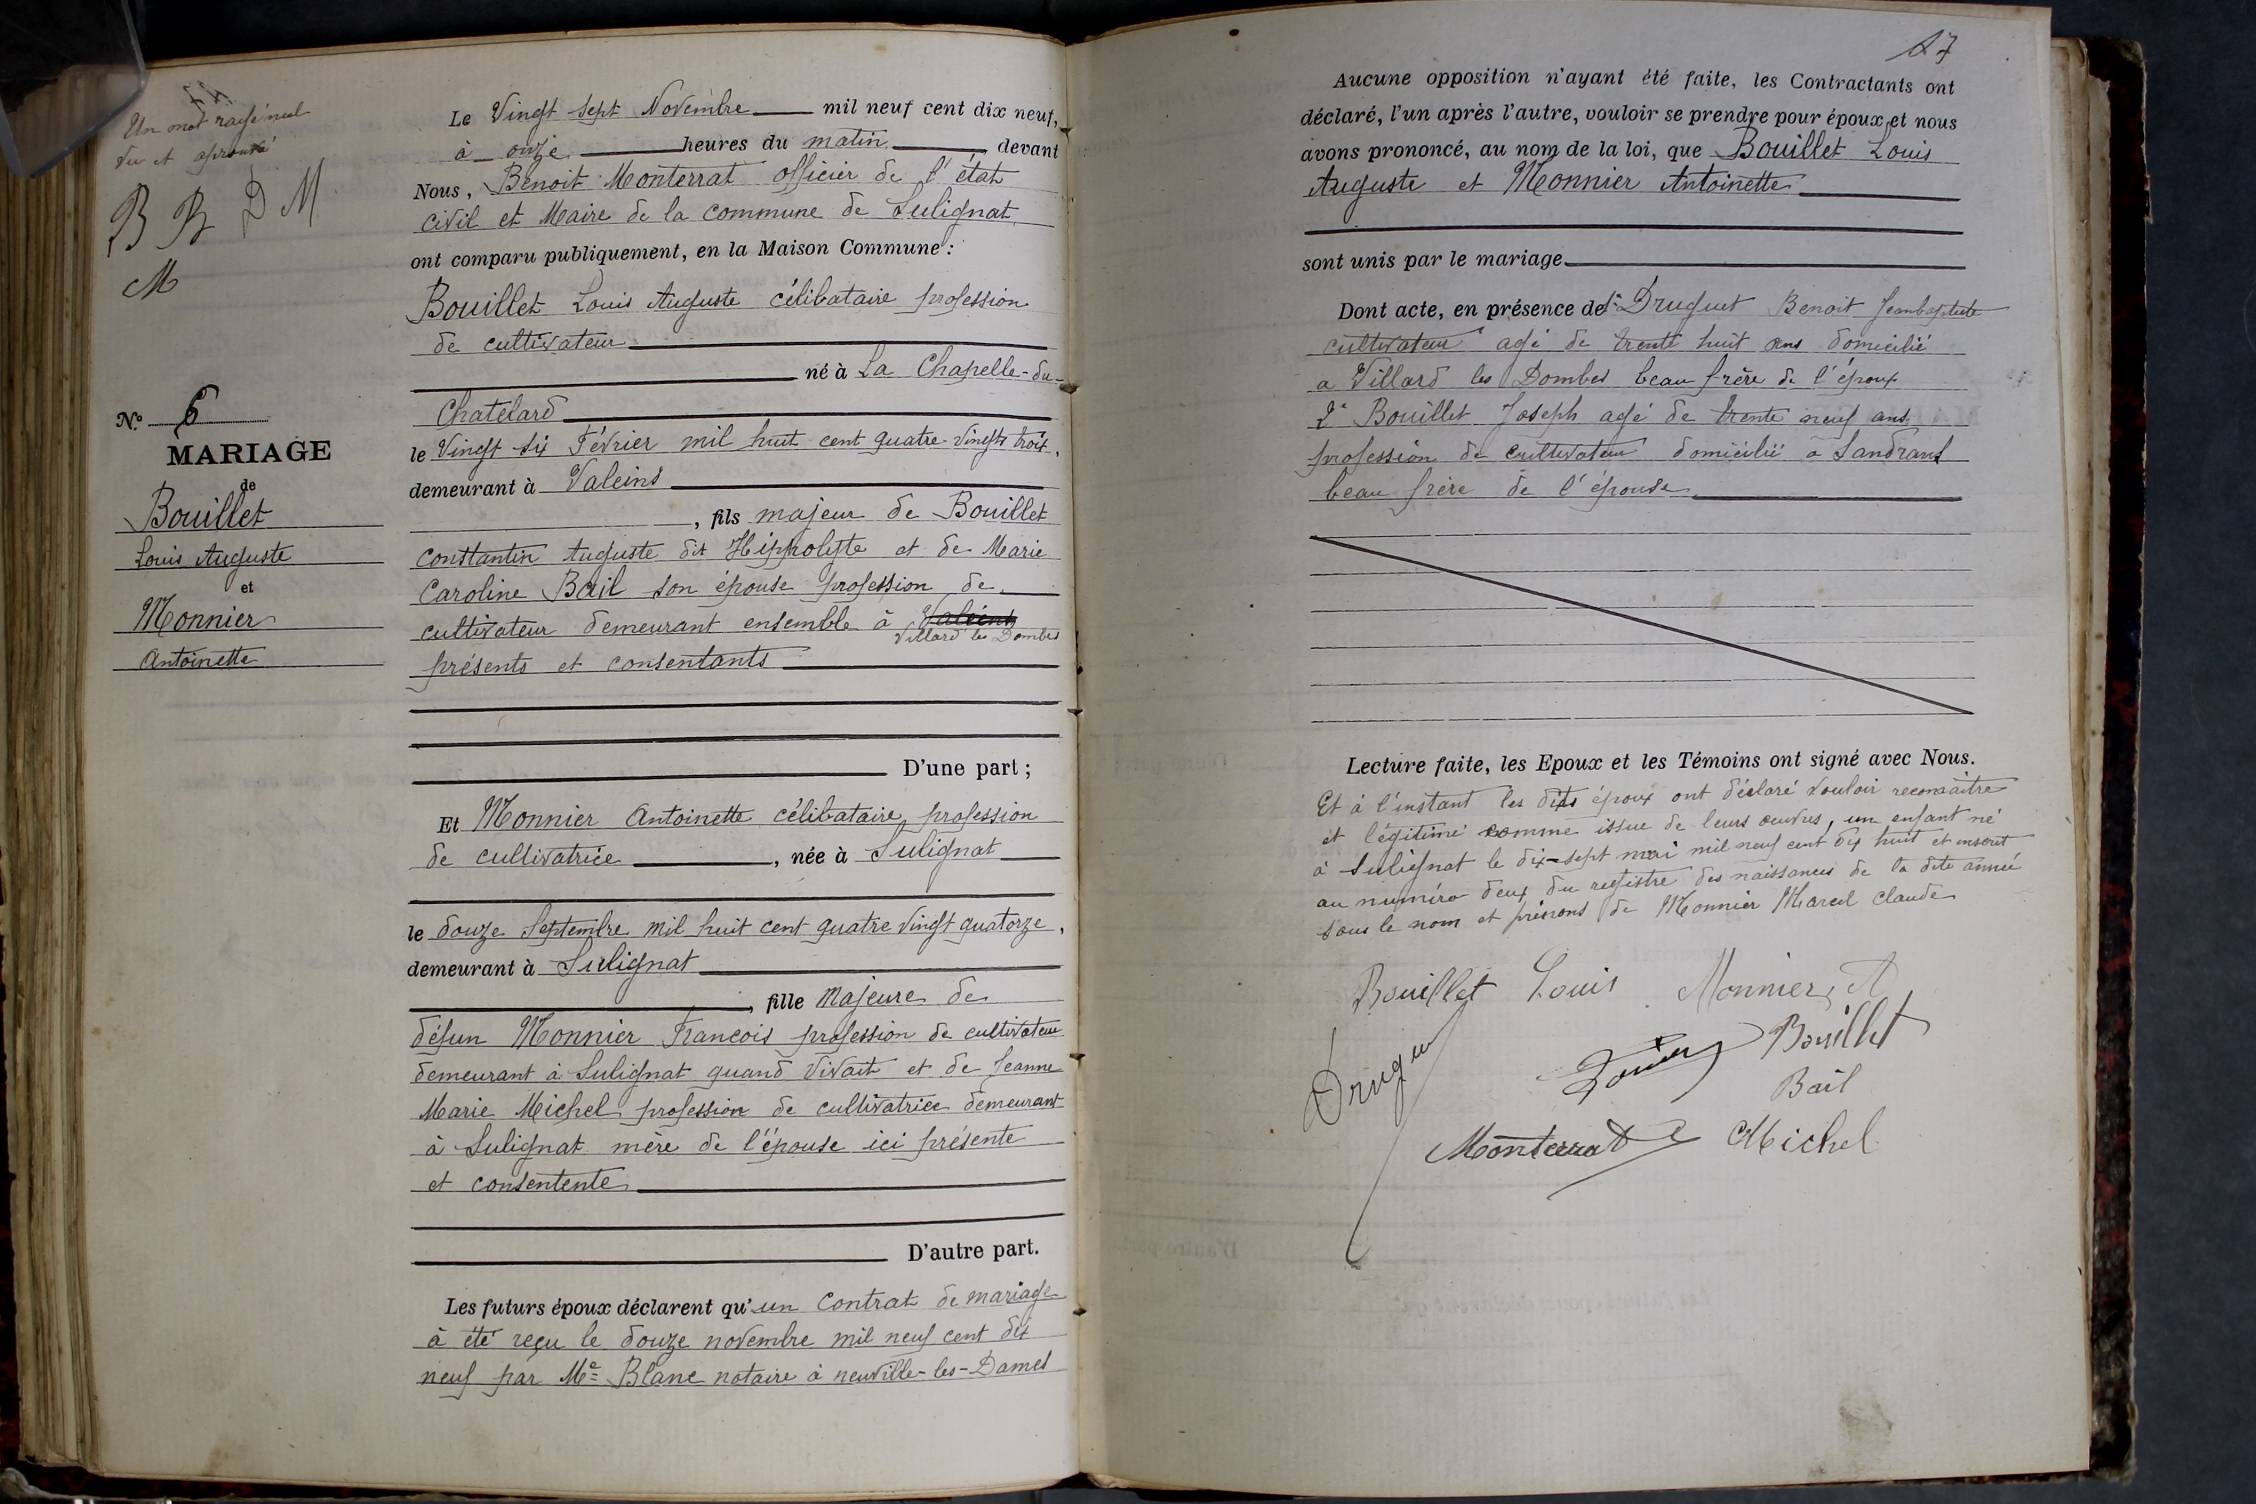 Un mot rayé nul
vu et aprouvé
B B D M
M
N° 6
MARIAGE
de
Bouillet
Louis Auguste
et
Monnier
Antoinette
Le Vingt sept Novembre mil neuf cent dix neuf,
à onze heures du matin, devant
Nous, Benoit Monterrat officier de l'état
civil et Maire de la commune de Sulignat
ont comparu publiquement, en la Maison Commune :
Bouillet Louis Auguste célibataire profession
de cultivateur
né à La Chapelle-du-
Chatelard
le Vingt six Février mil huit cent quatre vingt trois,
demeurant à Valeins
, fils majeur de Bouillet
Constantin Auguste dit Hippolyte et de Marie
Caroline Bail son épouse profession de
cultivateur demeurant ensemble à Valeins
Villard les Dombes
présents et consentants
D'une part ;
Et Monnier Antoinette célibataire profession
de cultivatrice, née à Sulignat
le douze Septembre mil huit cent quatre vingt quatorze,
demeurant à Sulignat
, fille Majeure de
défun Monnier Francois profession de cultivateur
demeurant à Sulignat quand vivait et de Jeanne
Marie Michel profession de cultivatrice demeurant
à Sulignat mère de l'épouse ici présente
et consentente
D'autre part.
Les futurs époux déclarent qu'un contrat de mariage
à été reçu le douze novembre mil neuf cent dix
neuf par Me Blanc notaire à neuville-les-Dames
17
Aucune opposition n'ayant été faite, les Contractants ont
déclaré, l'un après l'autre, vouloir se prendre pour époux et nous
avons prononcé, au nom de la loi, que Bouillet Louis
Auguste et Monnier Antoinette
sont unis par le mariage
Dont acte, en présence de 1° Druguet Benoit Jeanbaptiste
cultivateur agé de trente huit ans domicilié
a Villard les Dombes beau frère de l'époux
2° Bouillet Joseph agé de trente neuf ans
profession de cultivateur domicilié a Sandrans
beau frère de l'épouse
Lecture faite, les Epoux et les Témoins ont signé avec Nous.
Et à l'instant les dits époux ont déclaré vouloir reconnaitre
et légitimé comme issue de leurs œuvres, un enfant né
à Sulignat le dix-sept mai mil neuf cent dix huit et inscrit
au numéro deux du registre des naissances de la dite année
sous le nom et prénons de Monnier Marcel Claude
Bouillet Louis Monnier A
Druguet Bouillet
Bail
Monterrat Michel